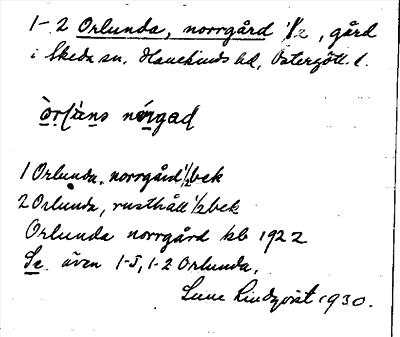 1-2 Orlunda, norrgård 1/2, gård
i Skeda sn, Hanekinds hd, Östergötl. l.
norgad
1 Orlunda, norrgård 1/2 bek
2 Orlunda, rusthåll 1/2 bek
Orlunda norrgård kb 1922
Se även 1-5, 1-2 Orlunda.
Sune Lindqvist 1930.